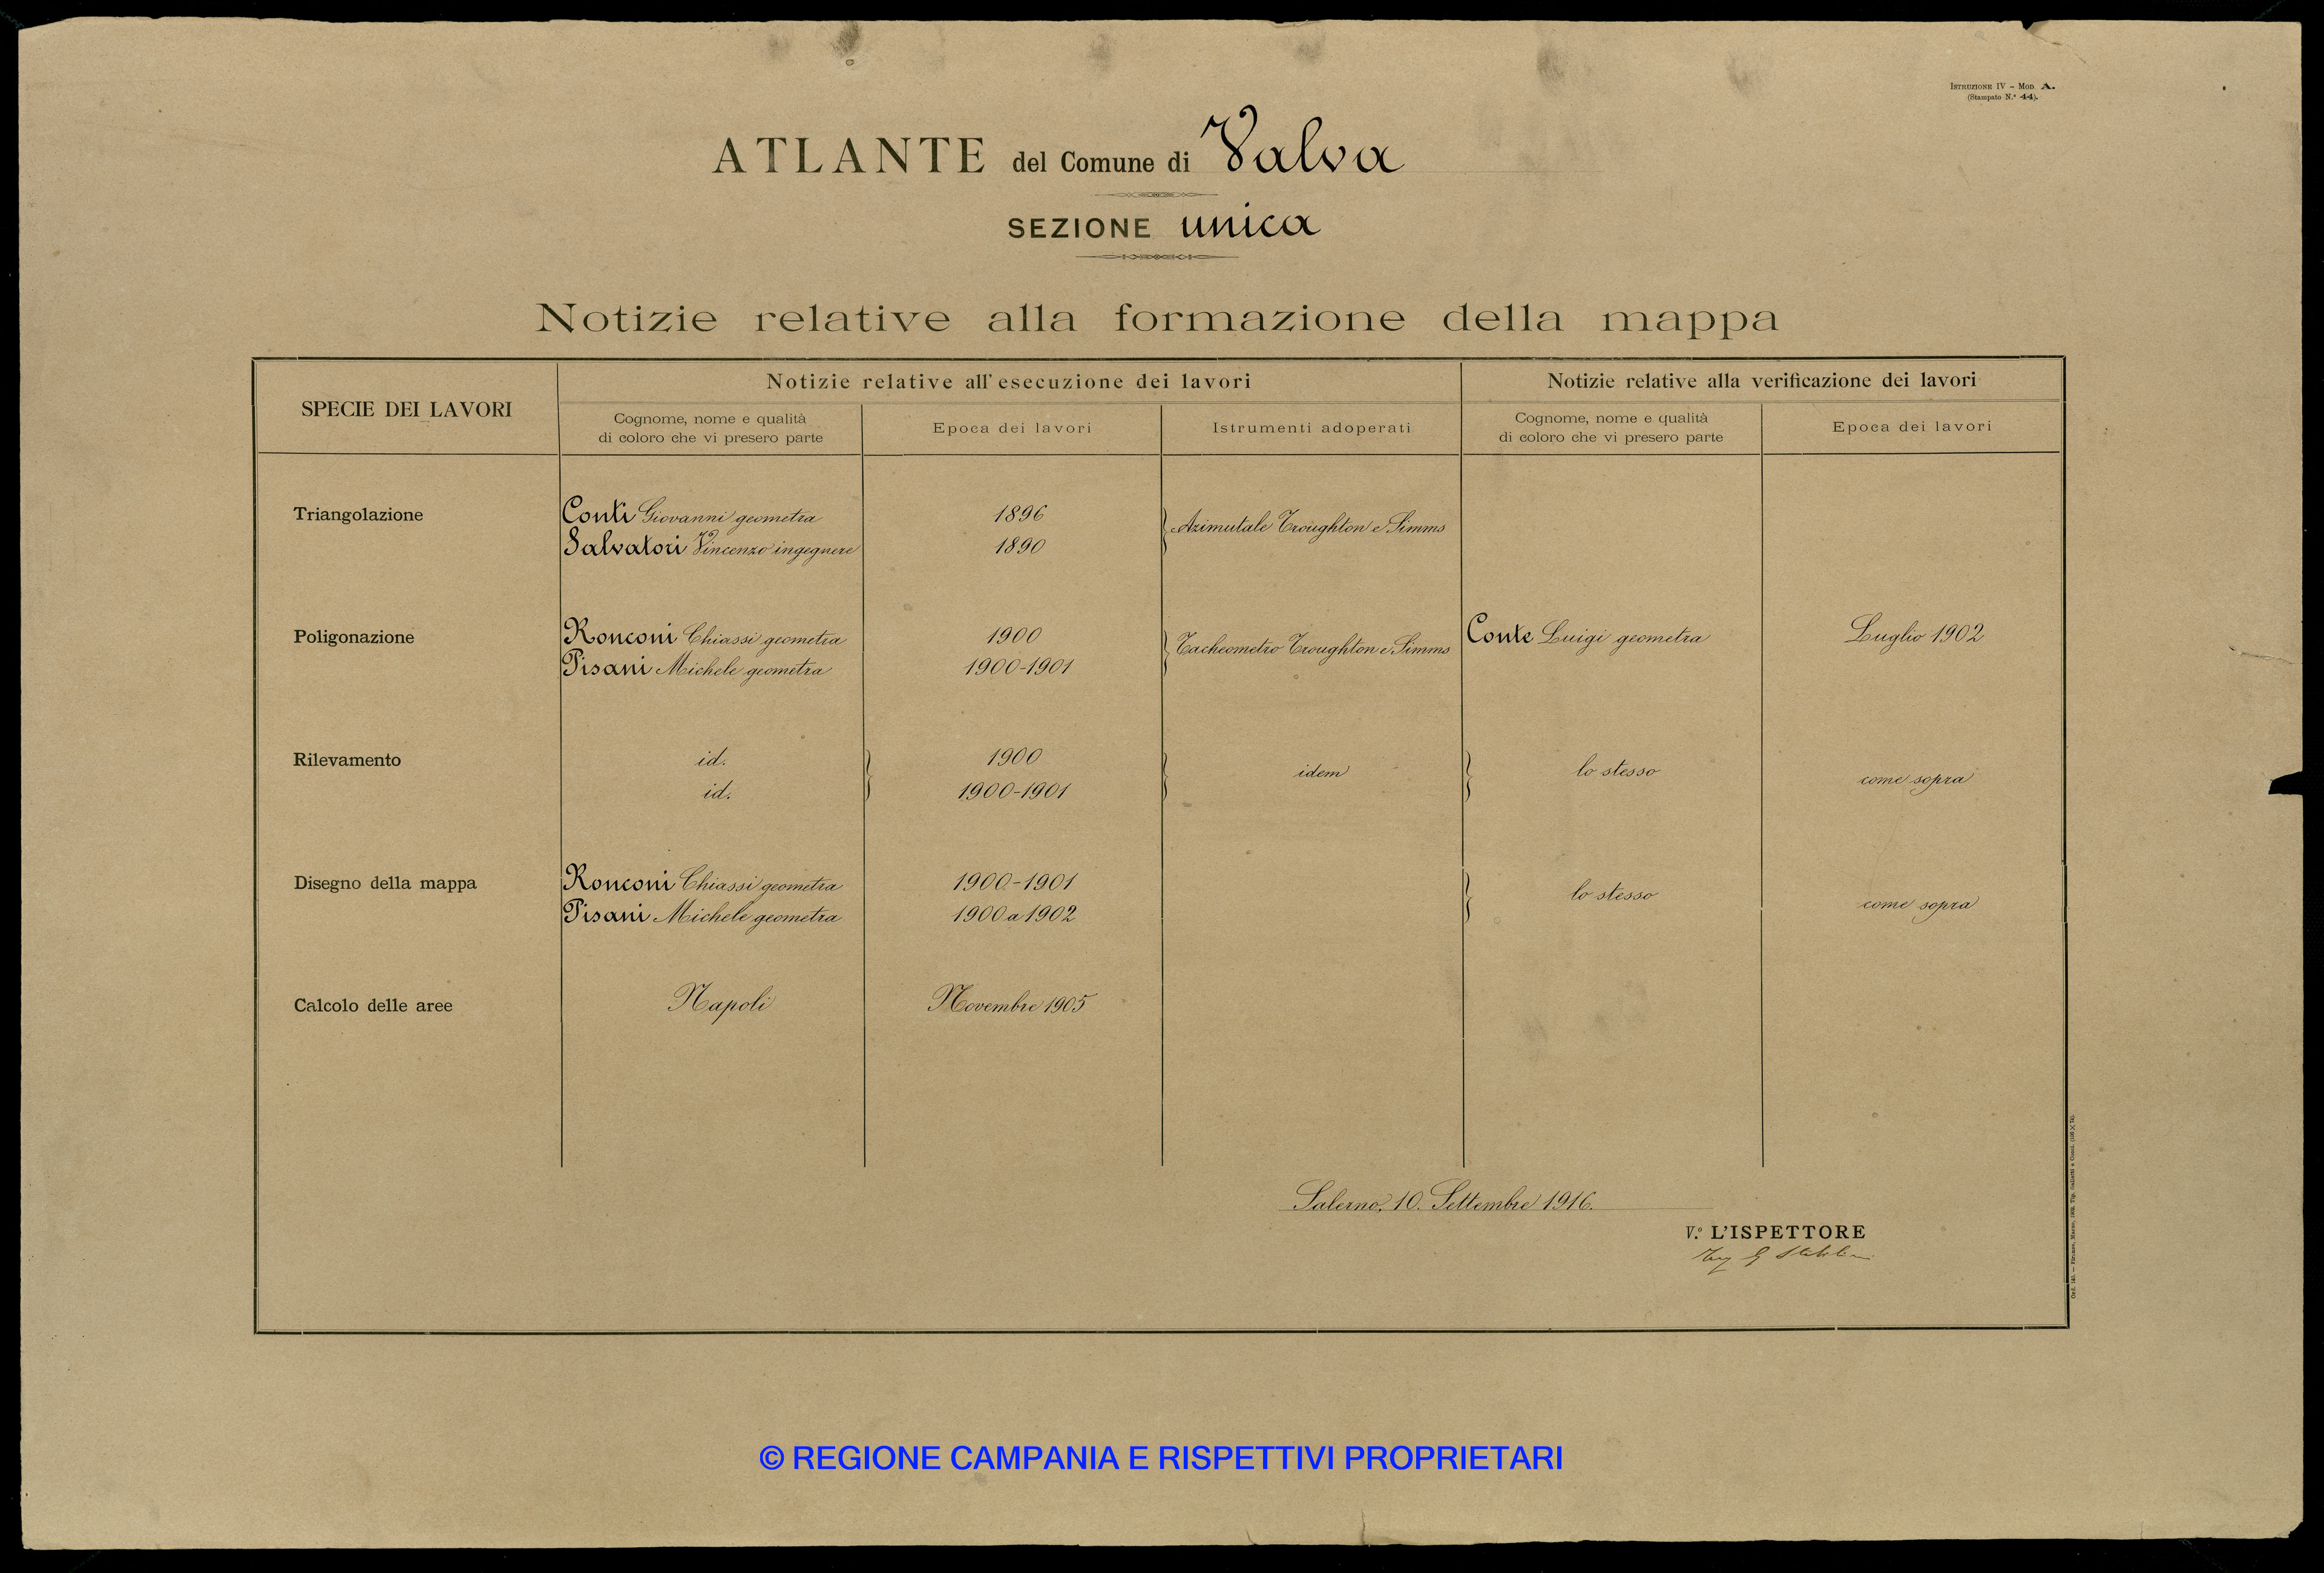 ISTRUZIONE IV – MOD. A.
(Stampato N.º 44).
ATLANTE del Comune di Valva
SEZIONE unica
Notizie relative alla formazione della mappa
SPECIE DEI LAVORI
Notizie relative all'esecuzione dei lavori
Notizie relative alla verificazione dei lavori
Cognome, nome e qualità
di coloro che vi presero parte
Epoca dei lavori
Istrumenti adoperati
Cognome, nome e qualità
di coloro che vi presero parte
Epoca dei lavori
Triangolazione
Conti Giovanni geometra
1896
Salvatori Vincenzo ingegnere
1890
Azimutale Troughton e Simms
Poligonazione
Ronconi Chiassi geometra
1900
Pisani Michele geometra
1900-1901
Tacheometro Troughton e Simms
Conte Luigi geometra
Luglio 1902
Rilevamento
id.
1900
id.
1900-1901
idem
lo stesso
come sopra
Disegno della mappa
Ronconi Chiassi geometra
1900-1901
Pisani Michele geometra
1900 a 1902
lo stesso
come sopra
Calcolo delle aree
Napoli
Novembre 1905
Salerno, 10. Settembre 1916.
V.º L'ISPETTORE
© REGIONE CAMPANIA E RISPETTIVI PROPRIETARI